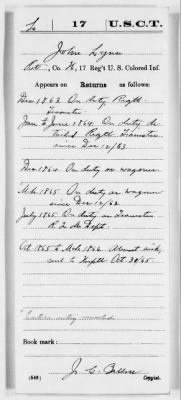 L | 17 | U.S.C.T.
John Lynn
Pvt., Co. H, 17 Reg't U. S. Colored Inf.
Appears on Returns as follows:
Dec 1863 On duty Regtl
Teamster
Jan to June 1864. On duty de-
tailed Regtl Teamster
since Dec 12/63
Dec 1864. On duty as wagoner
Mch 1865 On duty as wagoner
since Dec 12/63
July 1865 On duty as Teamster
Q. M. Dept.
Oct 1865 to Mch 1866. Absent sick,
sent to Hosptl Oct 30/65.
Book mark:
(546)
J. G.
Copyist.